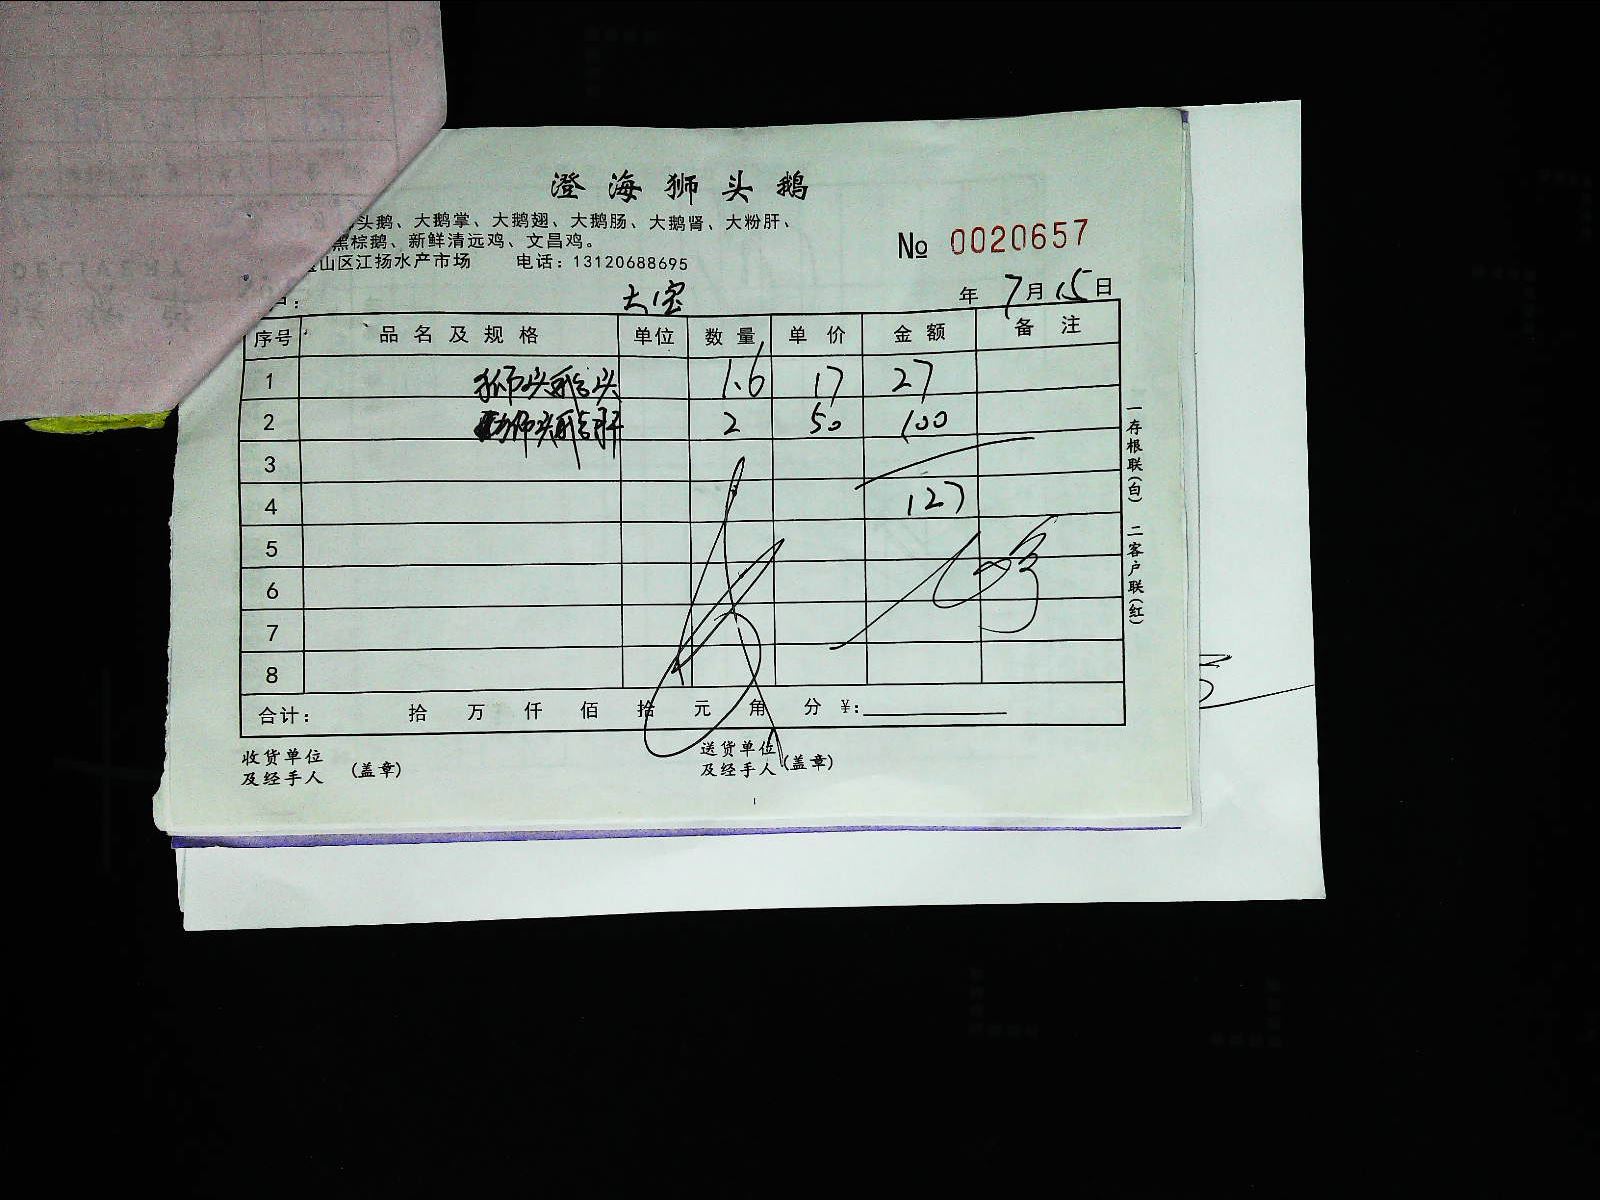 澄海狮头鹅
头鹅、大鹅掌、大鹅翅、大鹅肠、大鹅肾、大粉肝、
黑棕鹅、新鲜清远鸡、文昌鸡。
山区江扬水产市场 电话：13120688695
№ 0020657
大宝 年 7月15日
序号 品名及规格 单位 数量 单价 金额 备注
1 狮头鹅头 1.6 17 27
2 狮头鹅肝 2 50 100
3
4 127
5
6
7
8
合计： 拾 万 仟 佰 拾 元 角 分 ¥：
收货单位 送货单位
及经手人 （盖章） 及经手人 （盖章）
一存根联（白） 二客户联（红）